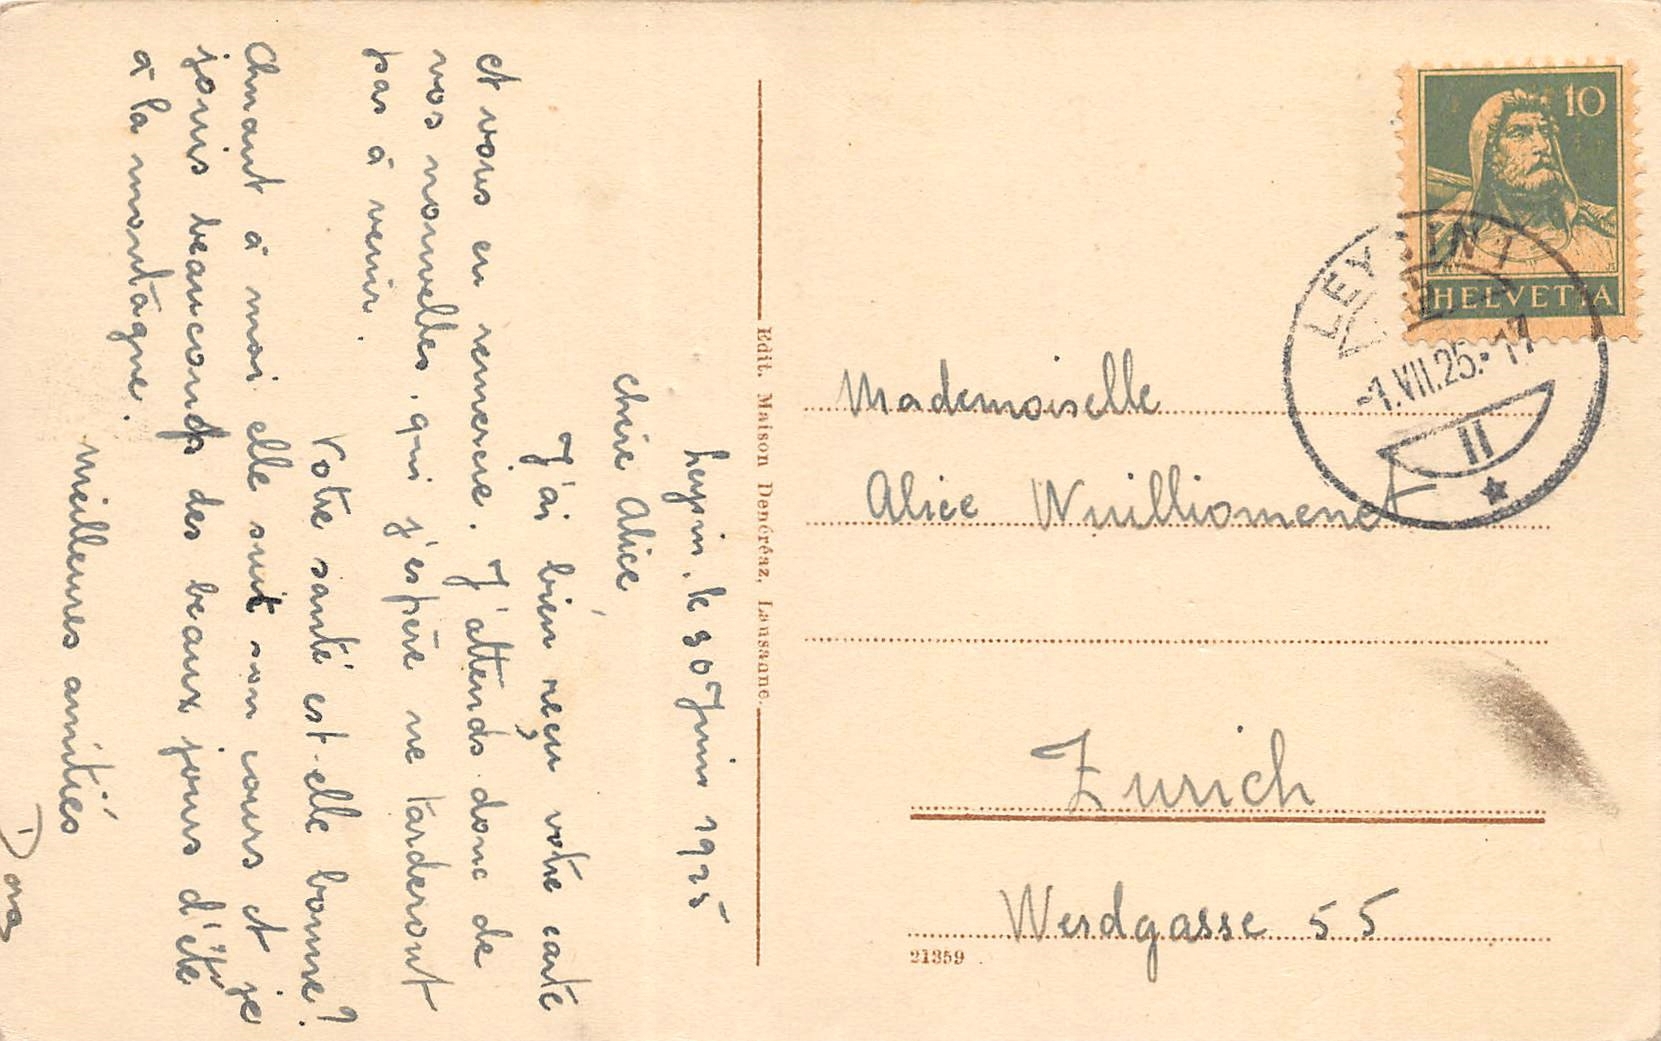 Leysin, le 30 Juin 1925
Chère Alice,
J'ai bien reçu votre carte
et vous en remercie. J'attends donc de
vos nouvelles, qui j'espère ne tarderont
pas à venir.
Votre santé est-elle bonne?
Quant à moi elle suit son cours et je
jouis beaucoup des beaux jours d'été
à la montagne.
Meilleures amitiés
Dora
Edit. Maison Denéréaz, Lausanne.
10
HELVETIA
LEYSIN 1
-1.VII.25.-17
II
Mademoiselle
Alice Wuilliomenet
Zurich
Werdgasse 55
21359